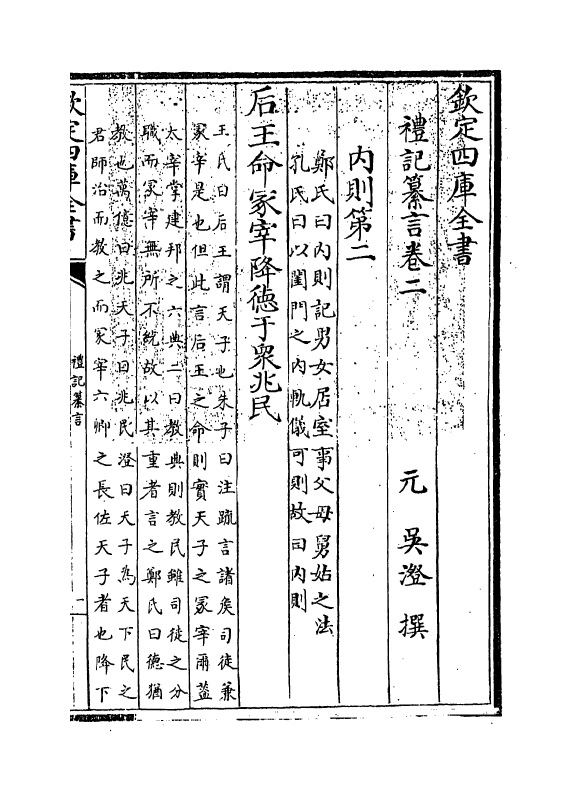 欽定四庫全書
禮記纂言卷二
元 吳澄 撰
内則第二
鄭氏曰内則記男女居室事父母舅姑之法
孔氏曰以閨門之内軌儀可則故曰内則
后王命冢宰降德于衆兆民
王氏曰后王謂天子也朱子曰注疏言諸侯司徒兼
冢宰是也但此言后王之命則實天子之冢宰爾蓋
太宰掌建邦之六典二曰教典則教民雖司徒之分
職而冢宰無所不統故以其重者言之鄭氏曰德猶
教也萬億曰兆天子曰兆民澄曰天子為天下民之
君師治而教之而冢宰六卿之長佐天子者也降下
欽定四庫全書
禮記纂言
一